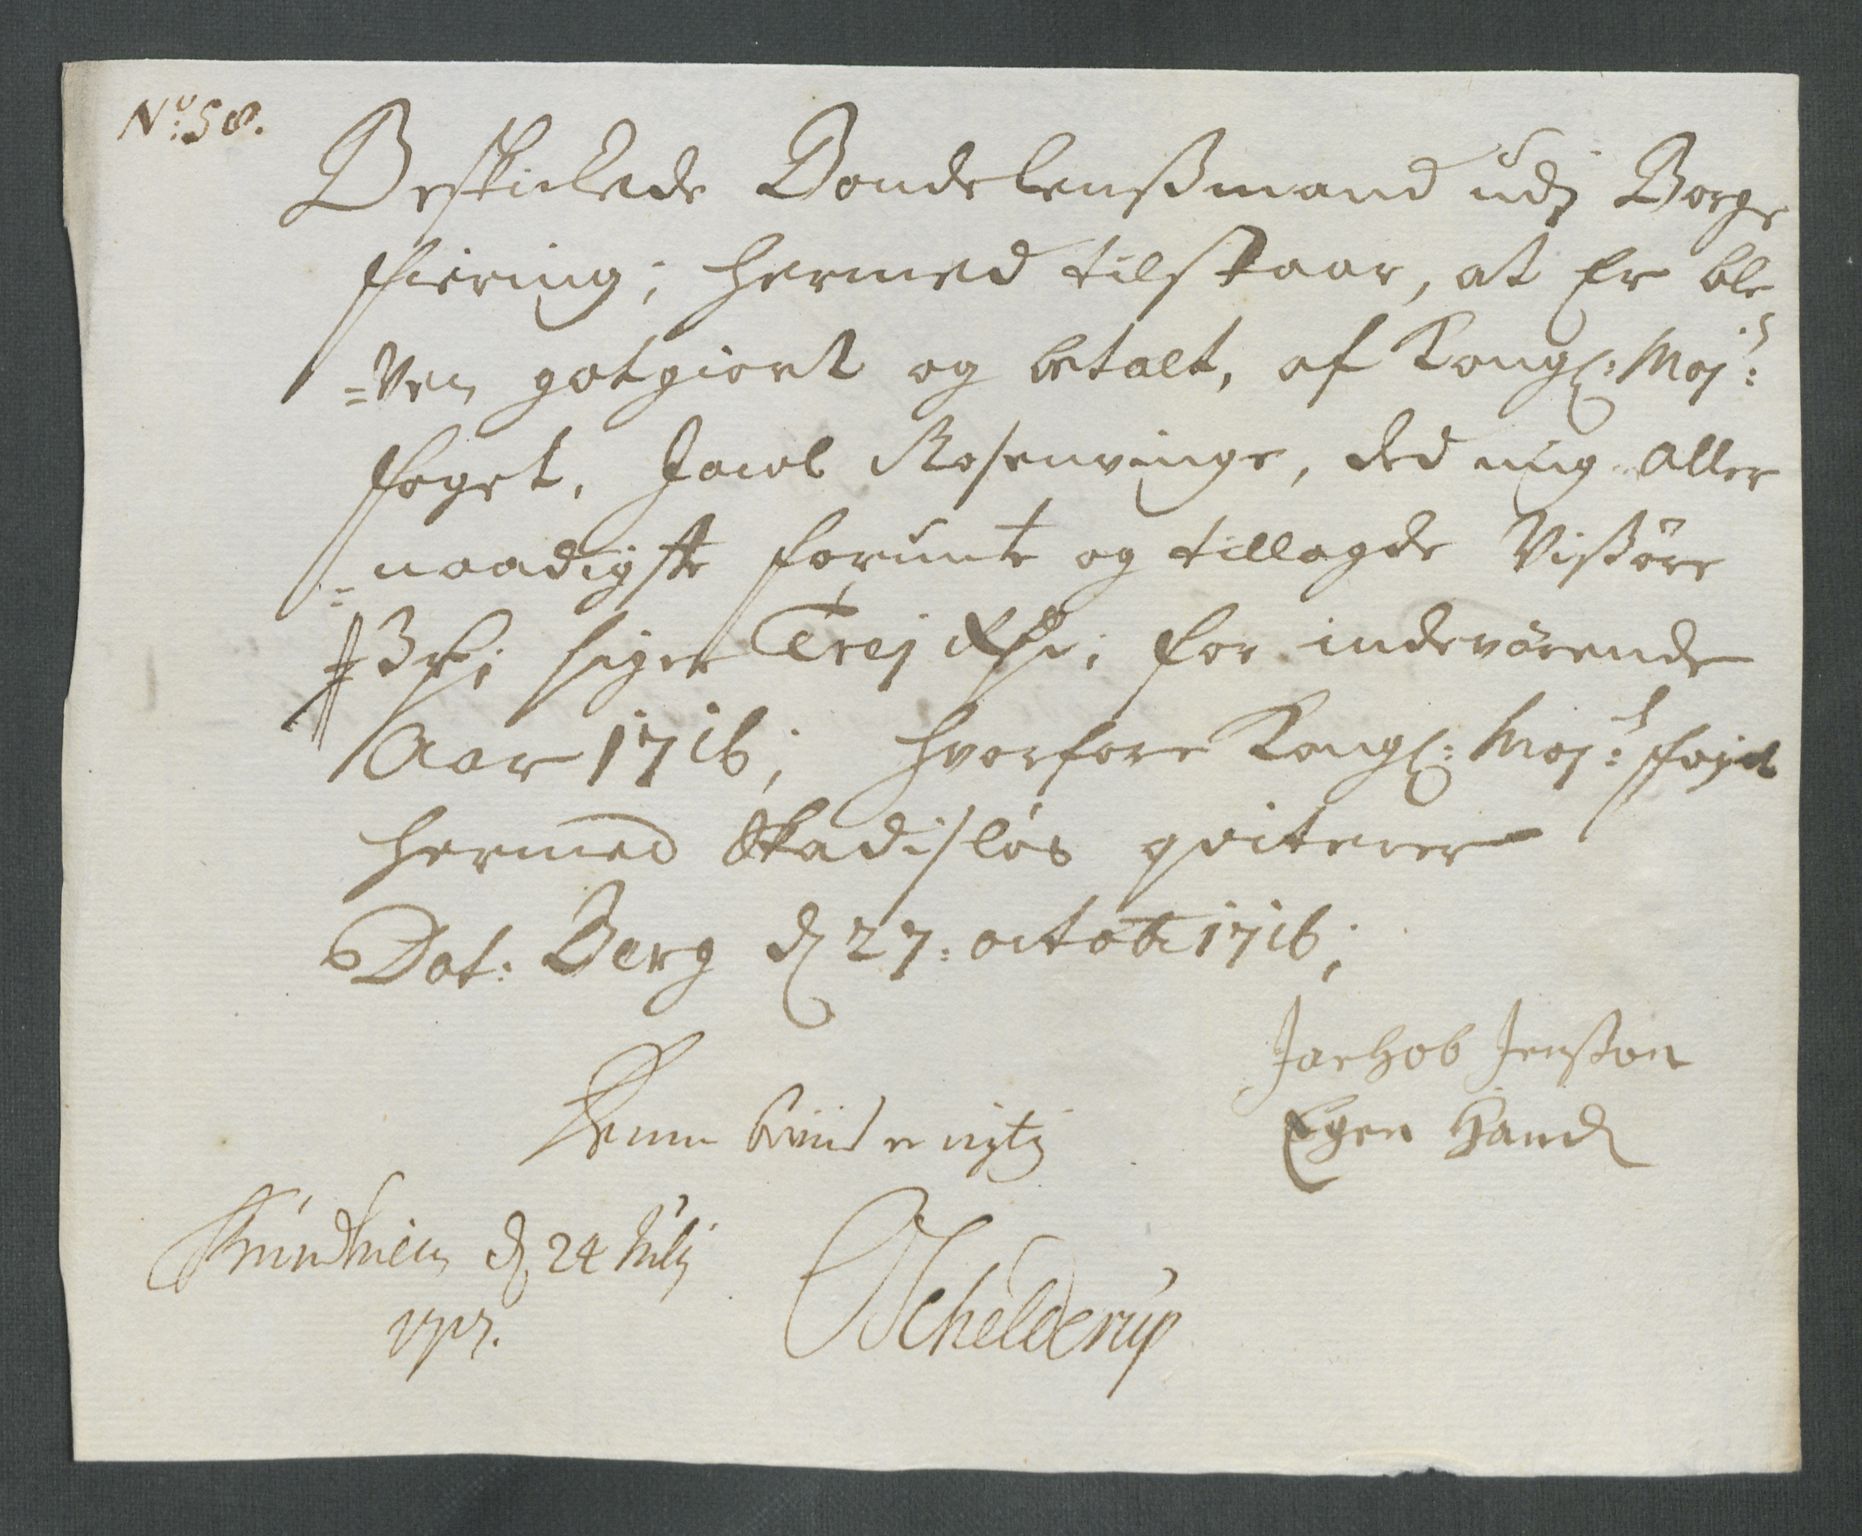 No: 58.
Beskickede Bondelensmand udj Borge
fiering; hermed tilstaar, at Er ble
=ven gotgiort og betalt, af Kongl: Maj:s
foget, Jacob Rosenvinge, ded mig aller
=naadigste forunte og tillagde Vissøre
3 rd; siger Trej Rdr; for indeværende
Aar 1716; hvorfore Kongl: Maj:s foget
hermed Skadisløs qviterer
Dat: Berg d 27: octob: 1716;
Jachob Jensson
Egen Hand
Denne qvind er rigtig
Trundhiem d 24 Julj
1717.
OSchelderup